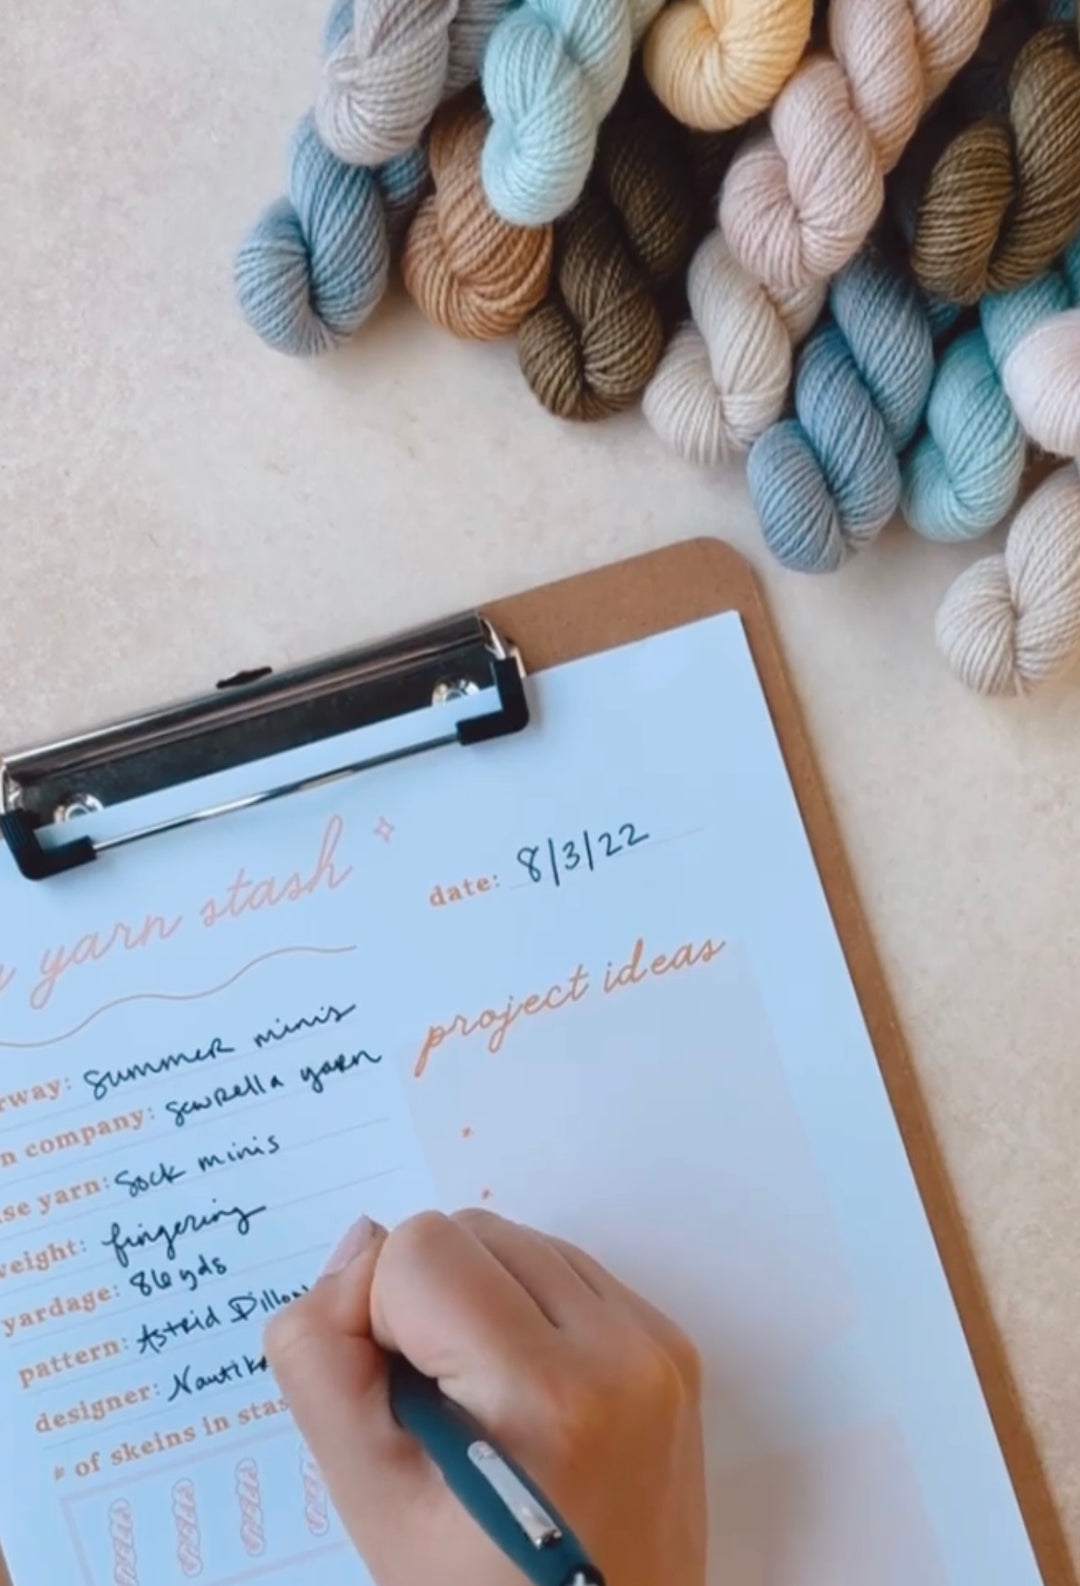 yarn stash
date: 8/3/22
project ideas
rway: summer minis
n company: sewrella yarn
se yarn: sock minis
weight: fingering
yardage: 86 yds
pattern: Astrid Dillon
designer: Nautik
# of skeins in stas